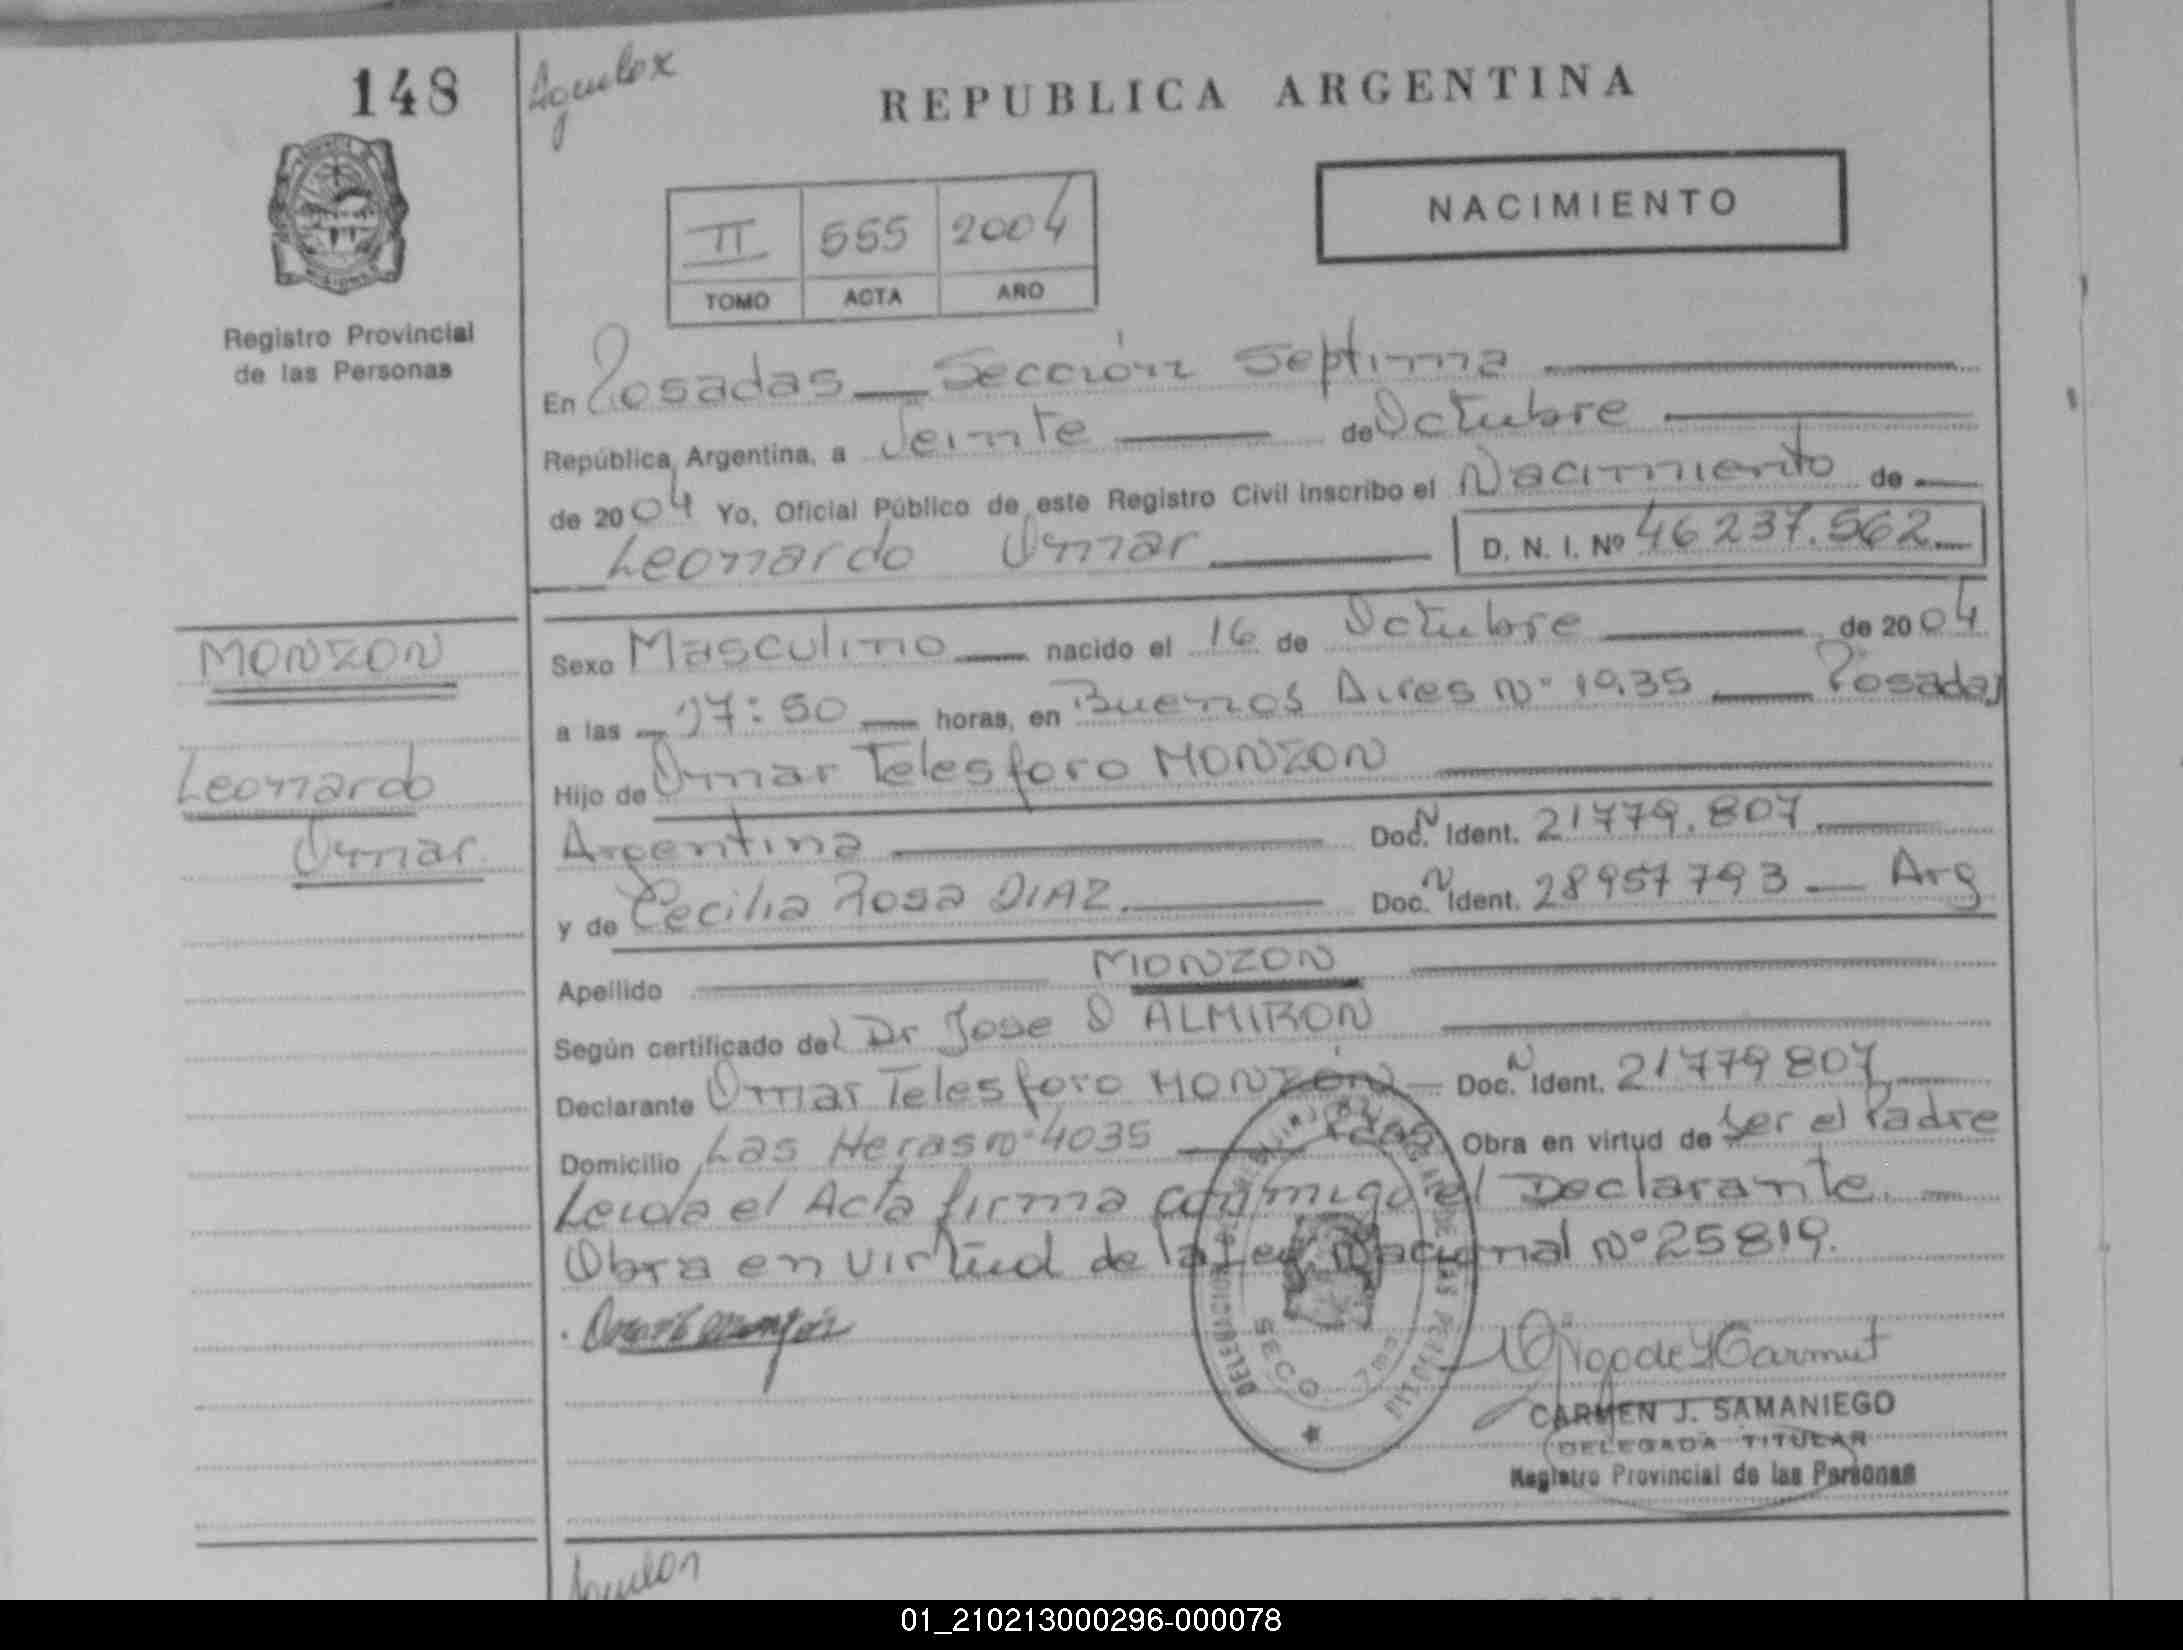 148
Aguilox
REPUBLICA ARGENTINA
II 555 2004
TOMO ACTA AÑO
NACIMIENTO
Registro Provincial
de las Personas
En Posadas Sección Septima
República Argentina, a Veinte de Octubre
de 2004 Yo, Oficial Público de este Registro Civil inscribo el Nacimiento de
Leonardo Omar D. N. I. Nº 46237.562
MONZON
Leonardo
Omar
Sexo Masculino nacido el 16 de Octubre de 2004
a las 17:50 horas, en Buenos Aires Nº 1935 Posadas
Hijo de Omar Telesforo MONZON
Argentina Doc. N Ident. 21779.807
y de Cecilia Rosa DIAZ. Doc. N Ident. 28957793 Arg
Apellido MONZON
Según certificado del Dr Jose O ALMIRON
Declarante Omar Telesforo MONZÓN Doc. N Ident. 21779807
Domicilio Las Heras Nº 4035 Pdas Obra en virtud de Ser el Padre
Leida el Acta firma conmigo el Declarante.
Obra en virtud de la Ley Nacional Nº 25819.
SECC. 7ma
CARMEN J. SAMANIEGO
DELEGADA TITULAR
Registro Provincial de las Personas
01_210213000296-000078